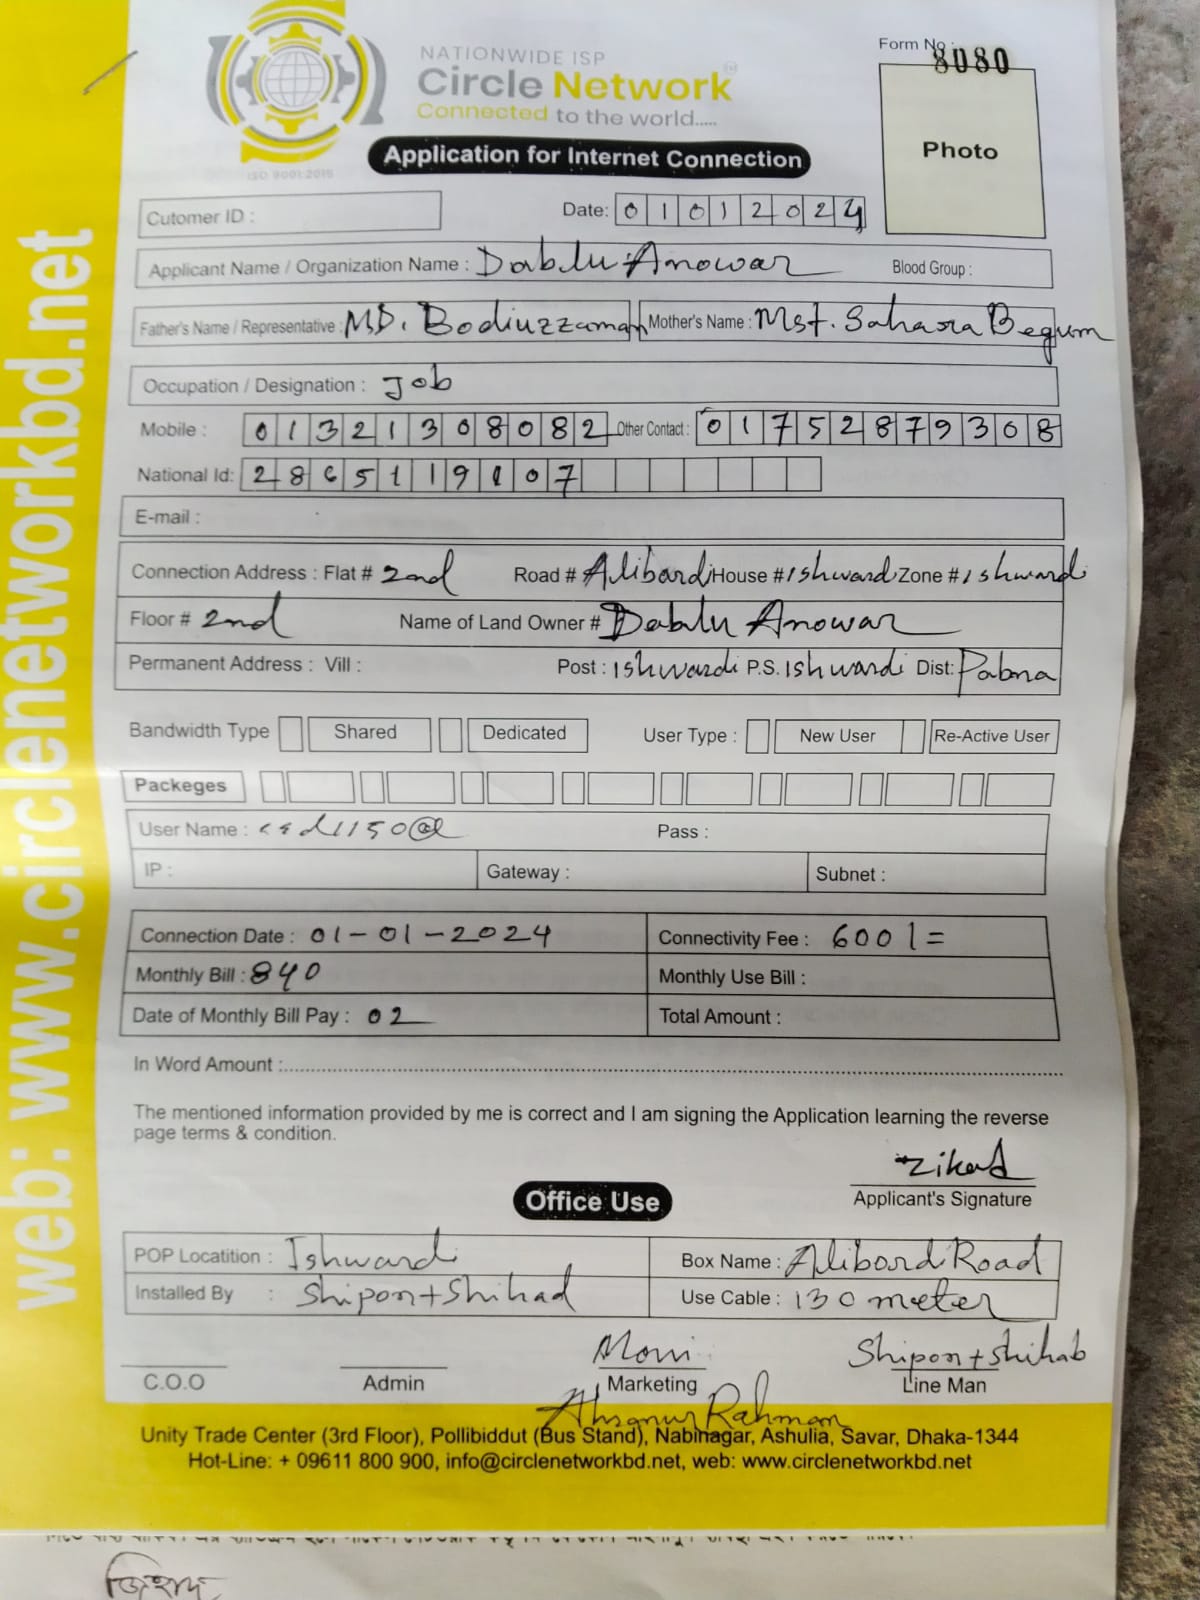 NATIONWIDE ISP
Circle Network
Connected to the world.....
ISO 9001:2015
Form No : 8080
Photo
Application for Internet Connection
Cutomer ID : Date: 01012024
Applicant Name / Organization Name : Dablu Anowar Blood Group :
Father's Name / Representative : MD. Bodiuzzaman Mother's Name : Mst. Sahara Begum
Occupation / Designation : Job
Mobile : 01321308082 Other Contact : 01752879308
National Id: 2865119107
E-mail :
Connection Address : Flat # 2nd Road # Alibardi House # Ishwardi Zone # Ishwardi
Floor # 2nd Name of Land Owner # Dablu Anowar
Permanent Address : Vill : Post : Ishwardi P.S. Ishwardi Dist: Pabna
Bandwidth Type Shared Dedicated User Type : New User Re-Active User
Packeges
User Name : Pass :
IP : Gateway : Subnet :
Connection Date : 01-01-2024 Connectivity Fee : 600/=
Monthly Bill : 840 Monthly Use Bill :
Date of Monthly Bill Pay : 02 Total Amount :
In Word Amount :
The mentioned information provided by me is correct and I am signing the Application learning the reverse
page terms & condition.
Applicant's Signature
Office Use
POP Locatition : Ishwardi Box Name : Alibord Road
Installed By : Shipon+Shihad Use Cable : 130 meter
Moni Shipon+Shihab
C.O.O Admin Marketing Line Man
Ahsanur Rahman
Unity Trade Center (3rd Floor), Pollibiddut (Bus Stand), Nabinagar, Ashulia, Savar, Dhaka-1344
Hot-Line: + 09611 800 900, info@circlenetworkbd.net, web: www.circlenetworkbd.net
web: www.circlenetworkbd.net
জিহাদ